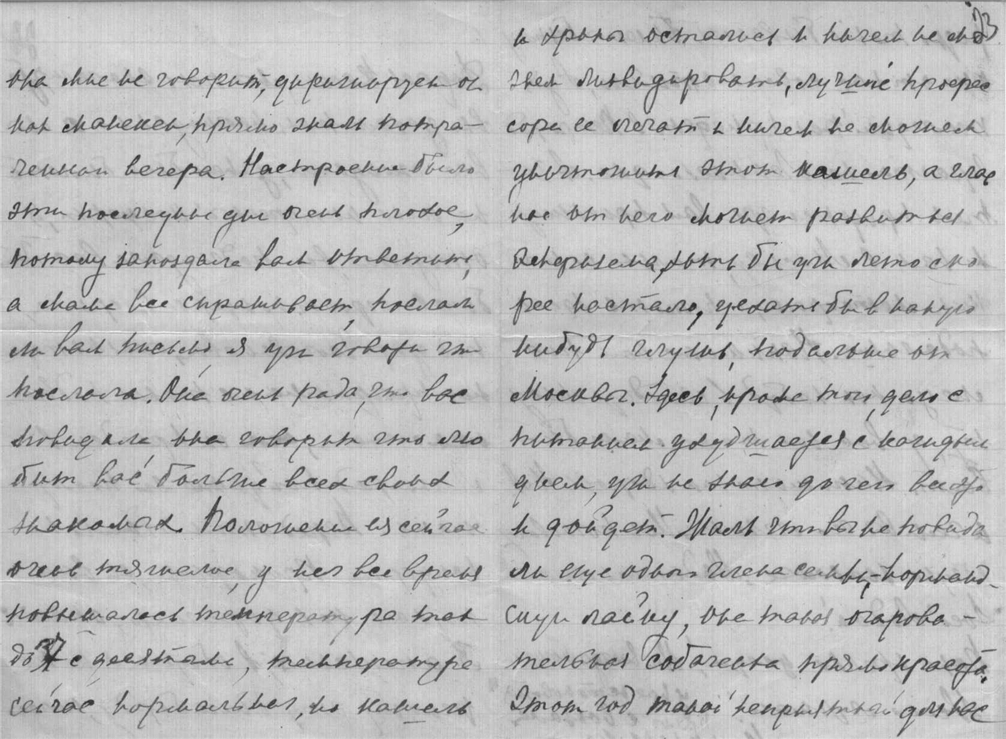 она мне не говорит, дирижирует он
как манекен, прямо жаль потра-
ченного вечера. Настроение было
эти последние дни очень плохое,
потому запоздала вам ответить,
а мама все спрашивает, послали
ли вам письмо я уж говорю что
послала. Она очень рада, что вас
повидала, она говорит что лю
бит вас больше всех своих
знакомых. Положение ея сейчас
очень тяжелое, у нея все время
повышалась температура так
до 37 с десятыми, температура
сейчас нормальная, но кашель
73
и хрипы остались и ничем не мо
жем ликвидировать, лучшие профес
сора ее лечат и ничем не можем
уничтожить этот кашель, а глав
ное от него может развиться
эмфизема, хоть бы уж лето ско
рее настало, уехать бы в какую
нибудь глушь, подальше от
Москвы. Здесь, кроме того, дело с
питанием ухудшается с каждым
днем, уж не знаю до чего
и дойдет. Жаль что вы не повида
ли еще одного члена семьи,
лайку, она такая очарова-
тельная собаченка прямо красота.
Этот год такой неприятный для нас